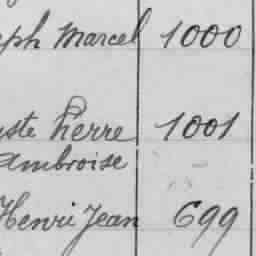 eph Marcel 1000
uste Pierre 1001
Ambroise
Henri Jean 699